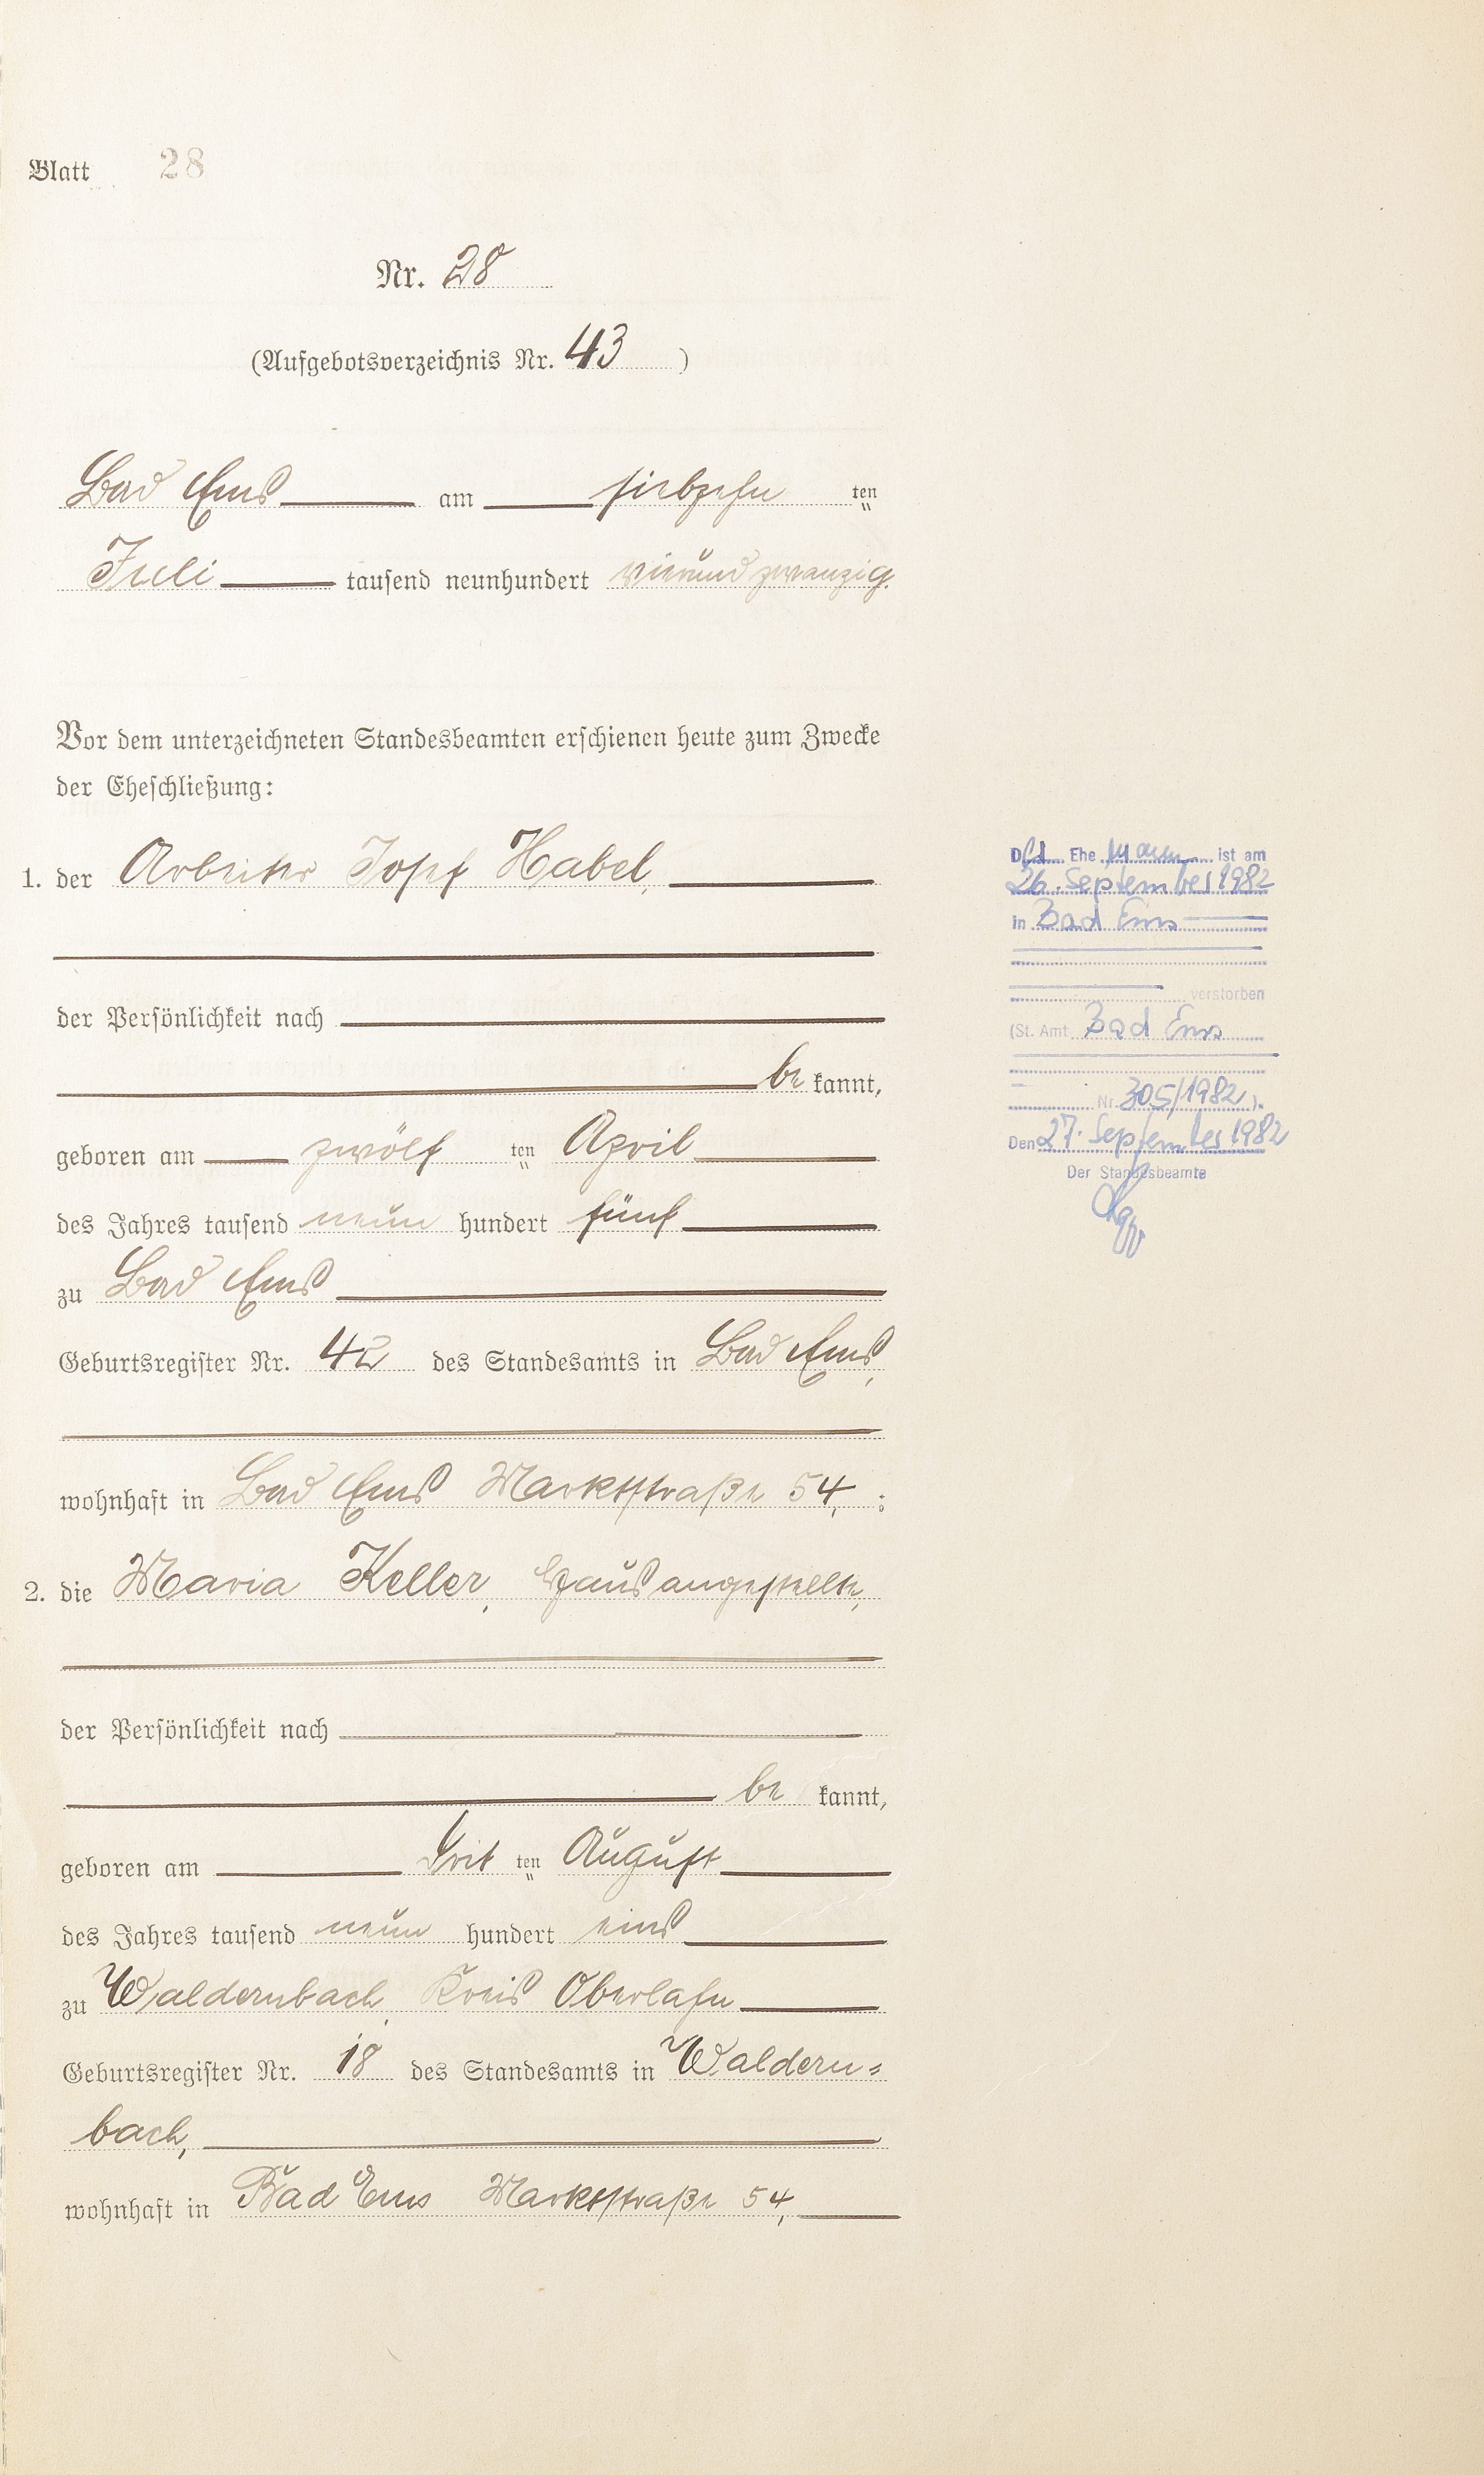 Blatt 28
Nr. 28
(Aufgebotsverzeichnis Nr. 43 )
Bad Ems am siebzehn ten
Juli tausend neunhundert vierundzwanzig.
Vor dem unterzeichneten Standesbeamten erschienen heute zum Zwecke
der Eheschließung:
1. der Arbeiter Josef Habel,
der Persönlichkeit nach
be kannt,
geboren am zwölf ten April
des Jahres tausend neun hundert fünf
zu Bad Ems
Geburtsregister Nr. 42 des Standesamts in Bad Ems,
wohnhaft in Bad Ems Marktstraße 54, ;
2. die Maria Keller, Hausangestellte,
der Persönlichkeit nach
be kannt,
geboren am drit ten August
des Jahres tausend neun hundert eins
zu Waldernbach, Kreis Oberlahn
Geburtsregister Nr. 18 des Standesamts in Waldern=
bach,
wohnhaft in Bad Ems Marktstraße 54,
Der Ehe mann ist am
26. September 1982
in Bad Ems
verstorben
(St. Amt Bad Ems
Nr. 305/1982 ).
Den 27. September 1982
Der Standesbeamte